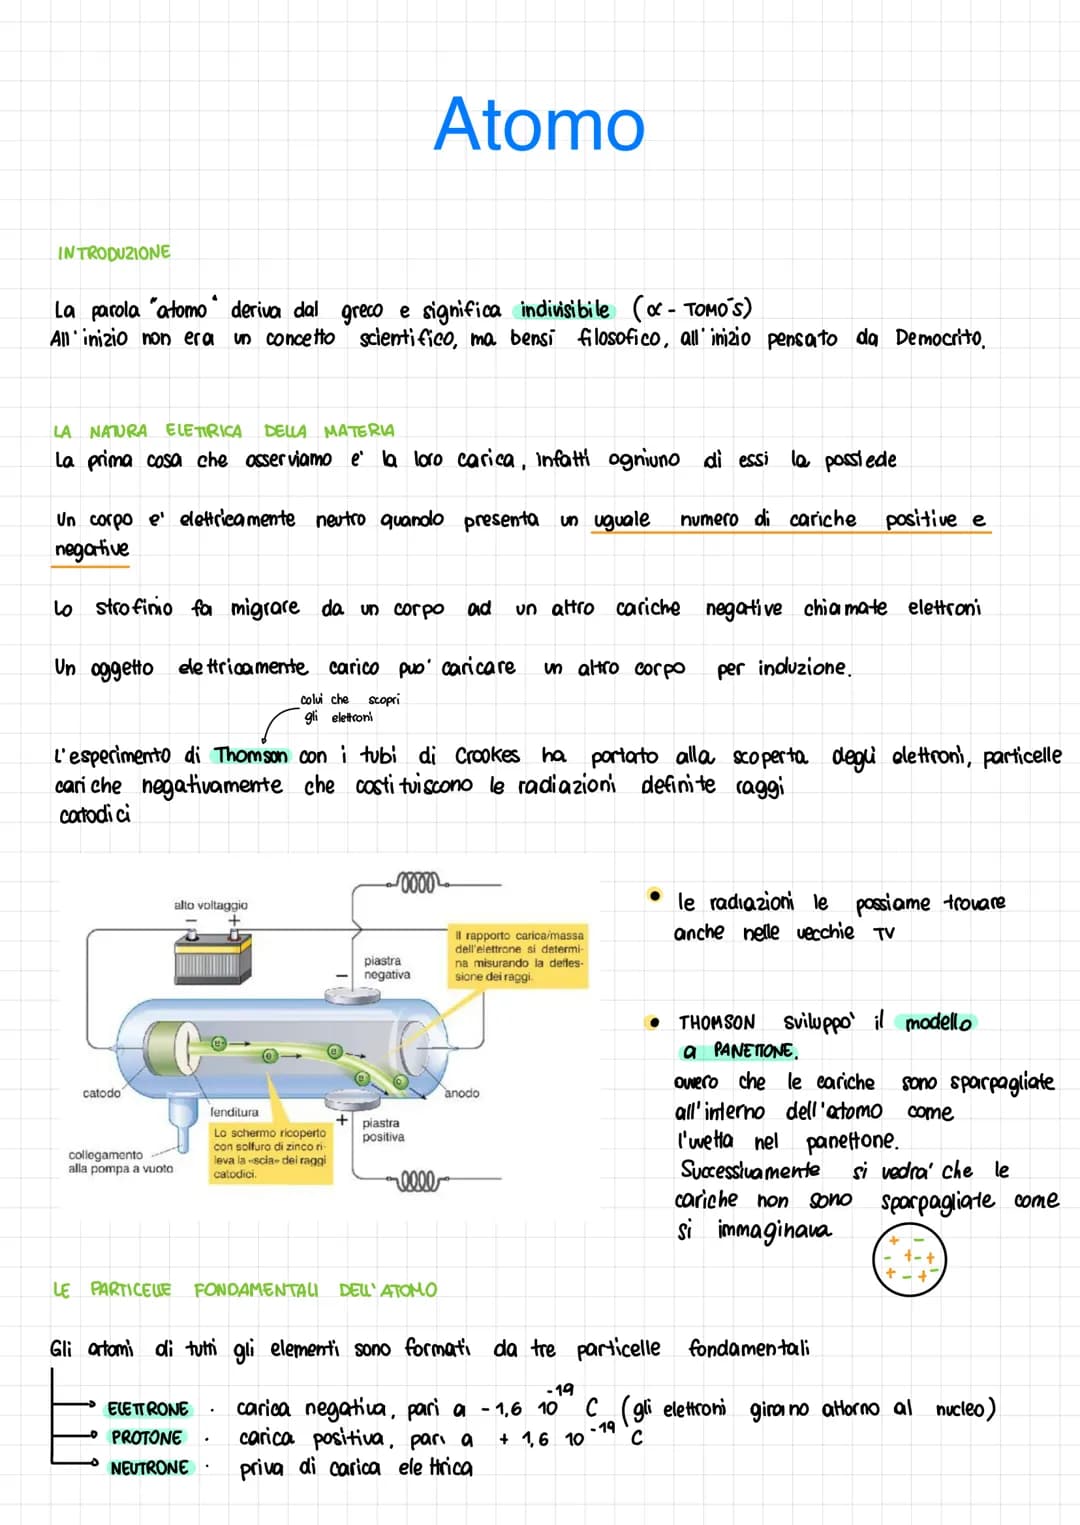 Atomo
INTRODUZIONE
La parola "atomo" deriva dal greco e significa indivisibile (α - TOMO´S)
All'inizio non era un concetto scientifico, ma bensì filosofico, all'inizio pensato da Democrito.
LA NATURA ELETTRICA DELLA MATERIA
La prima cosa che osserviamo e' la loro carica, infatti ogniuno di essi la possiede
Un corpo e' elettricamente neutro quando presenta un uguale numero di cariche positive e
negative
Lo strofinio fa migrare da un corpo ad un altro cariche negative chiamate elettroni
Un oggetto elettricamente carico puo' caricare un altro corpo per induzione.
colui che scopri
gli elettroni
L'esperimento di Thomson con i tubi di Crookes ha portato alla scoperta degli elettroni, particelle
cariche negativamente che costituiscono le radiazioni definite raggi
catodici
alto voltaggio
− +
Il rapporto carica/massa
dell'elettrone si determi-
na misurando la defles-
sione dei raggi.
piastra
negativa
−
e e e e e
catodo
anodo
fenditura
+
piastra
positiva
Lo schermo ricoperto
con solfuro di zinco ri-
leva la «scia» dei raggi
catodici.
collegamento
alla pompa a vuoto
• le radiazioni le possiame trovare
anche nelle vecchie TV
• THOMSON sviluppo' il modello
a PANETTONE,
ovvero che le cariche sono sparpagliate
all'interno dell'atomo come
l'uvetta nel panettone.
Successivamente si vedra' che le
cariche non sono sparpagliate come
si immaginava
+ −
− + - +
+ − + −
LE PARTICELLE FONDAMENTALI DELL'ATOMO
Gli atomi di tutti gli elementi sono formati da tre particelle fondamentali
ELETTRONE · carica negativa, pari a -1,6 10⁻¹⁹ C (gli elettroni girano attorno al nucleo)
PROTONE · carica positiva, pari a + 1,6 10⁻¹⁹ C
NEUTRONE · priva di carica elettrica